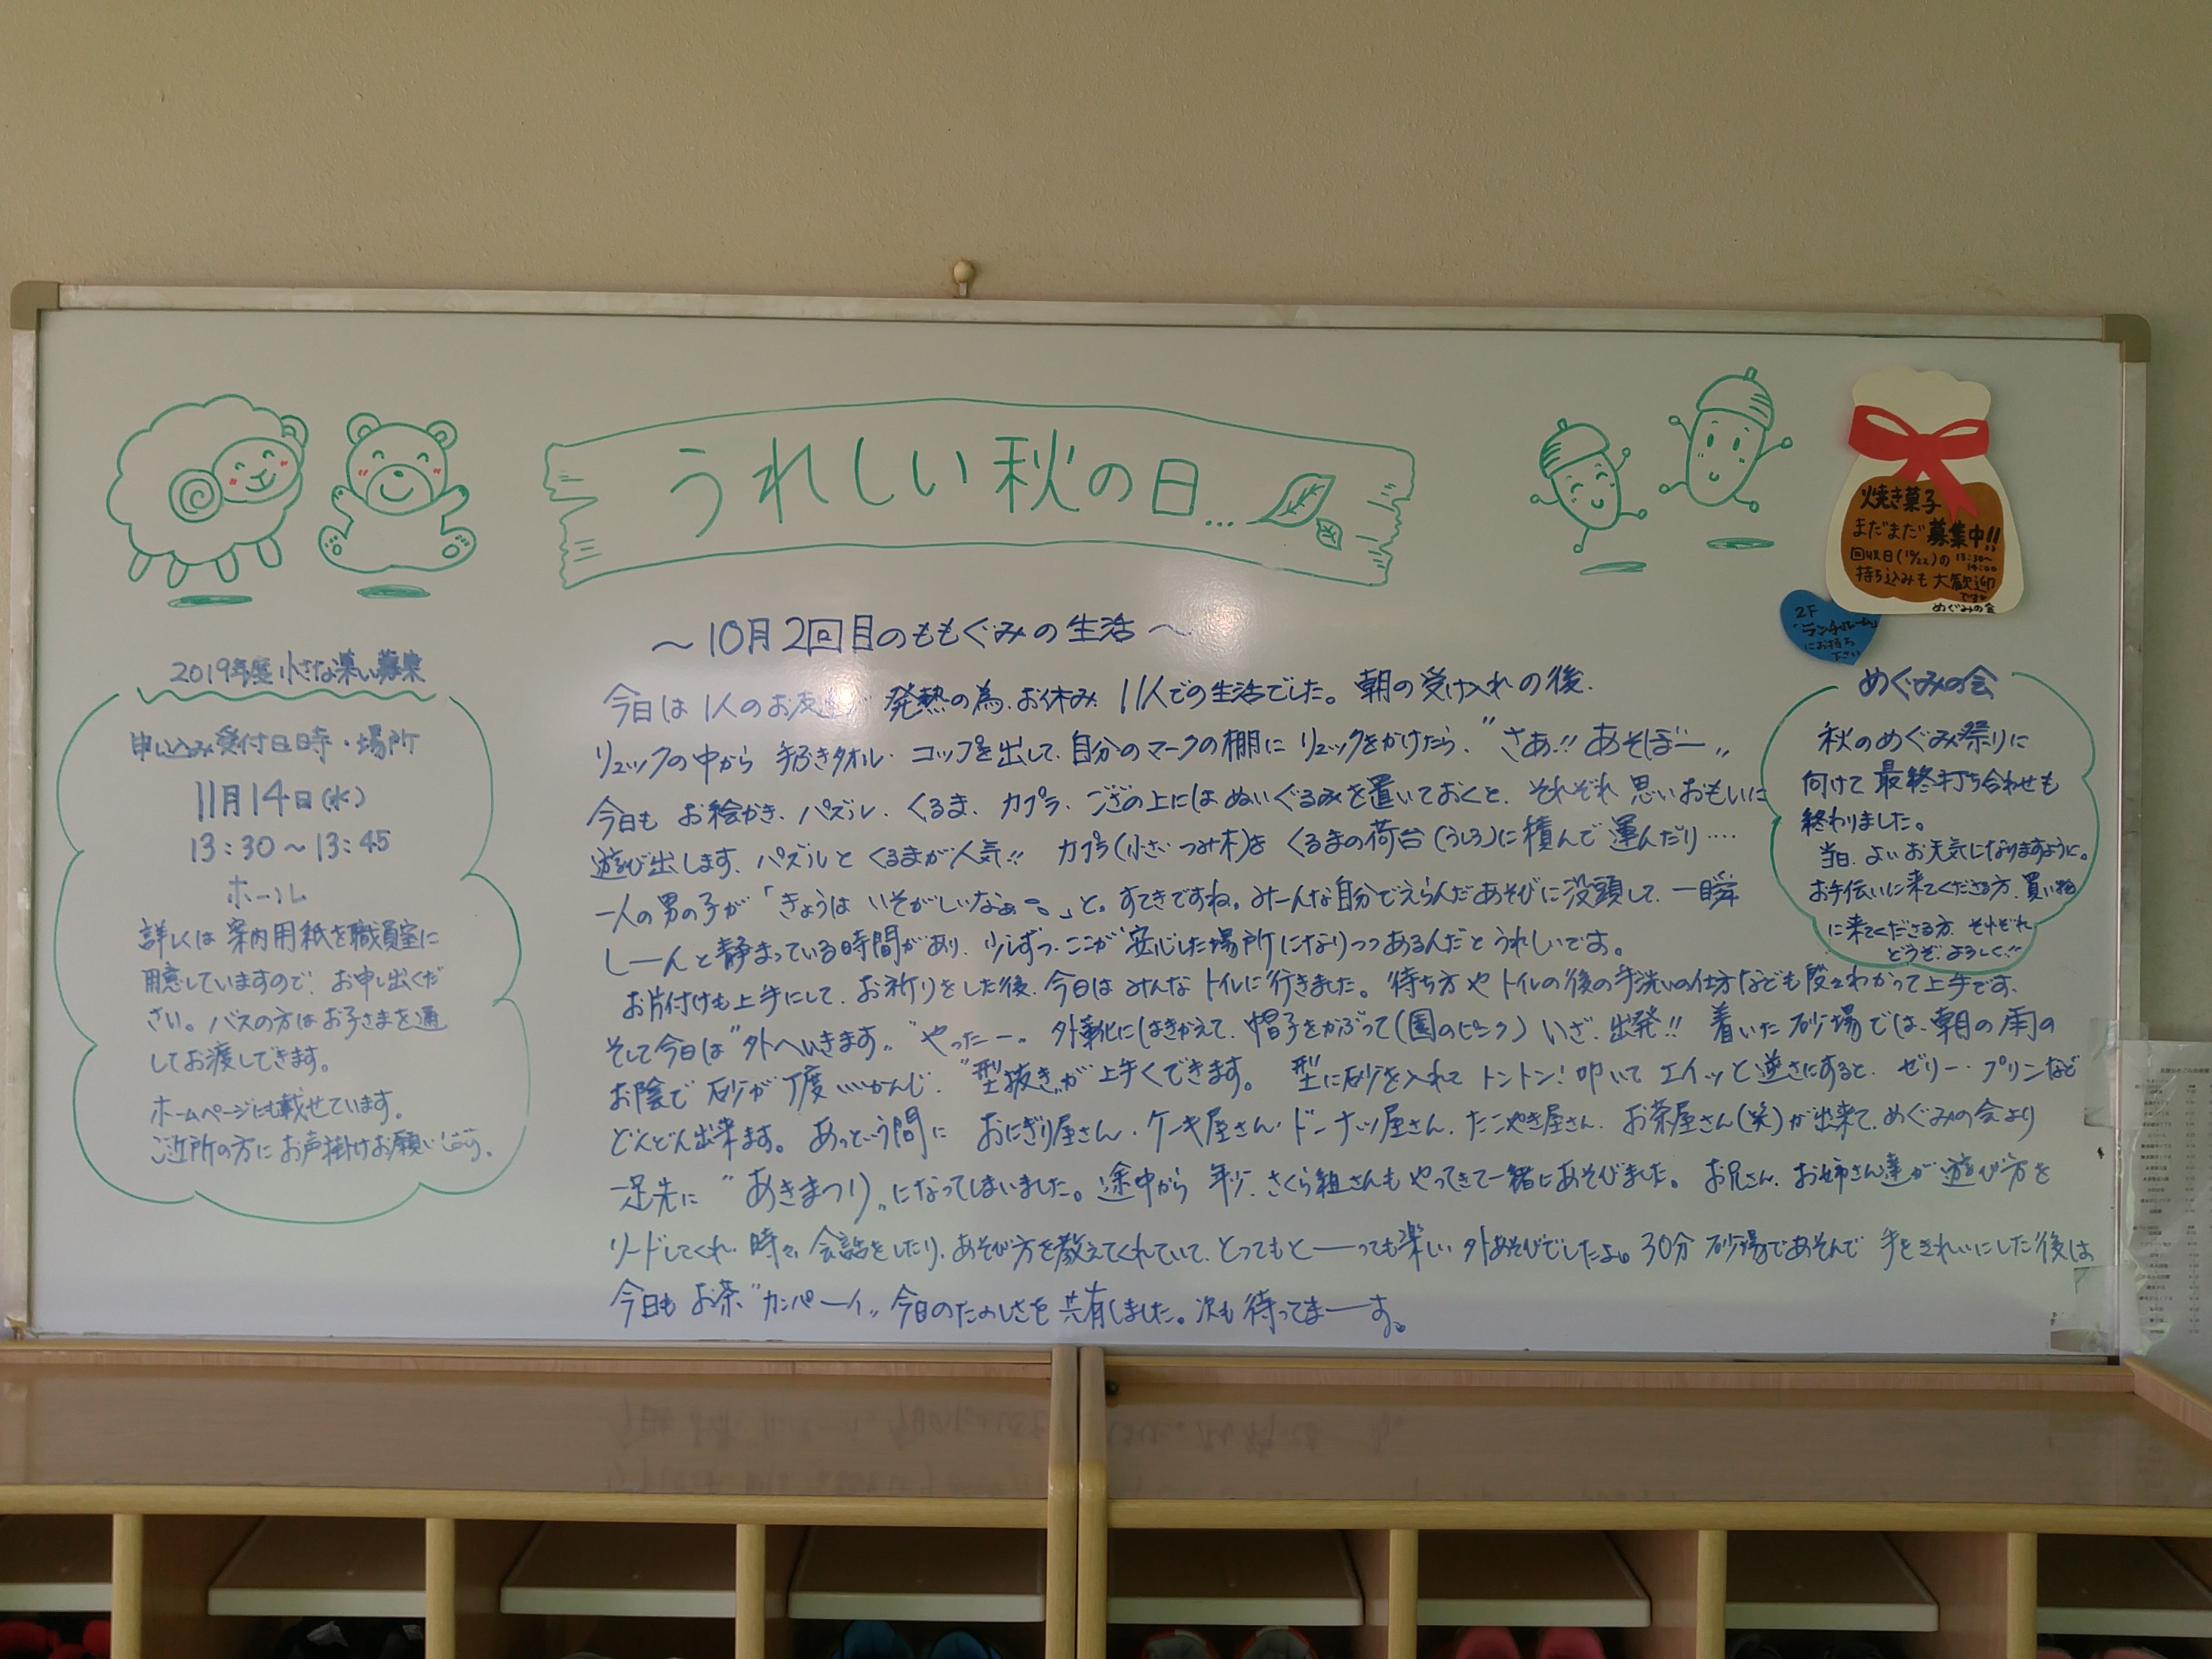 うれしい秋の日…
焼き菓子
まだまだ募集中!!
回収日(10/22)の 13:30〜
14:00
持ち込みも大歓迎
です
めぐみの会
2F
「ランチルーム」
にお持ち
下さい
2019年度 小さな集い募集
申し込み受付日時・場所
11月14日(水)
13:30〜13:45
ホール
詳しくは案内用紙を職員室に
用意していますので、お申し出くだ
さい。バスの方はお子さまを通
してお渡しできます。
ホームページにも載せています。
ご近所の方にお声掛けお願いします。
〜10月2回目のももぐみの生活〜
今日は1人のお友達が発熱の為、お休み、11人での生活でした。朝の受け入れの後、
リュックの中から 手ふきタオル・コップを出して、自分のマークの棚にリュックをかけたら、"さあ!!あそぼー"
今日も お絵かき、パズル、くるま、カプラ、ござの上にはぬいぐるみを置いておくと、それぞれ思いおもいに
遊び出します、パズルとくるまが人気!! カプラ(小さいつみ木)を くるまの荷台(うしろ)に積んで運んだり‥‥
一人の男の子が「きょうは いそがしいなぁ〜。」と。すてきですね。みーんな自分でえらんだあそびに没頭して、一瞬
しーんと静まっている時間があり、少しずつ、ここが安心した場所になりつつあるんだとうれしいです。
お片付けも上手にして、お祈りをした後、今日はみんなトイレに行きました。待ち方やトイレの後の手洗いの仕方なども段々わかって上手です、
そして今日は"外へいきます" "やったー" 外靴にはきかえて、帽子をかぶって(園のピンク) いざ、出発!! 着いた砂場では、朝の雨の
お陰で 砂が丁度いいかんじ、"型抜き"が上手くできます。 型に砂を入れてトントン!叩いてエイッと逆さにすると、ゼリー・プリンなど
どんどん出来ます。あっという間に おにぎり屋さん・ケーキ屋さん・ドーナッツ屋さん、たこやき屋さん、お茶屋さん(笑)が出来て、めぐみの会より
一足先に "あきまつり"になってしまいました。途中から 年少、さくら組さんもやってきて一緒にあそびました。お兄さん、お姉さん達が遊び方を
リードしてくれ、時々、会話をしたり、あそび方を教えてくれていて、とってもと——っても楽しい外あそびでしたよ。30分砂場であそんで 手をきれいにした後は
今日も お茶"カンパーイ" 今日のたのしさを共有しました。次も待ってまーす。
めぐみの会
秋のめぐみ祭りに
向けて最終打ち合わせも
終わりました。
当日、よいお天気になりますように。
お手伝いに来てくださる方、買い物
に来てくださる方、それぞれ
どうぞ、よろしく!!